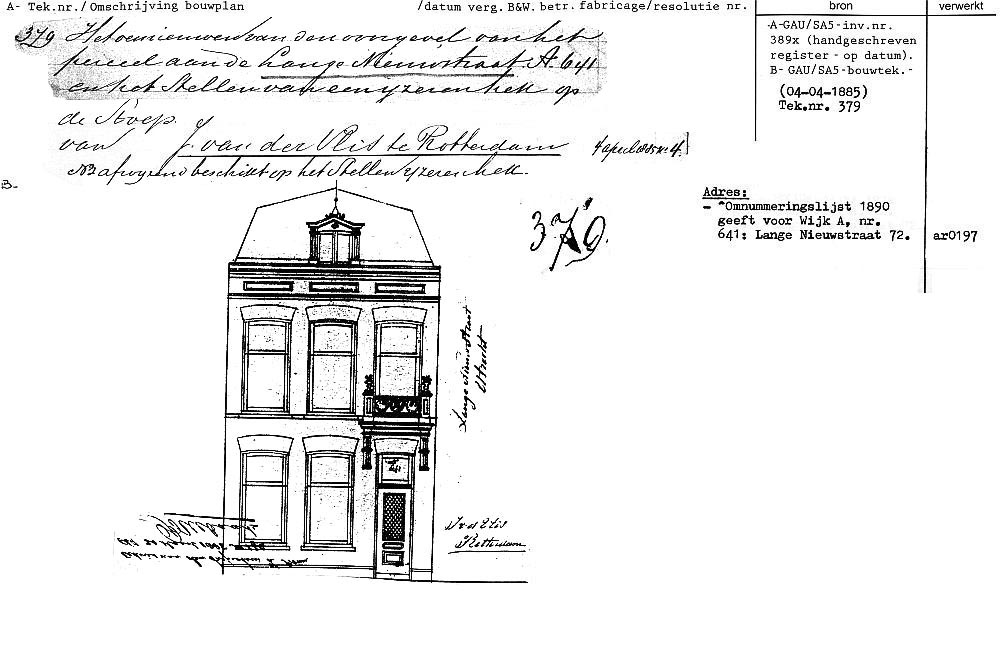 A- Tek.nr./ Omschrijving bouwplan /datum verg. B&W. betr. fabricage/resolutie nr. bron verwerkt
379 Het vernieuwen van den voorgevel van het
perceel aan de Lange Nieuwstraat A. 641
en het Stellen van een ijzeren hek op
de Stoep.
van J. van der Vlis te Rotterdam 4 april 1885 nr. 4.
NB afwijzend beschikt op het Stellen ijzeren hek.
-A-GAU/SA5-inv.nr.
389x (handgeschreven
register - op datum).
B- GAU/SA5-bouwtek.-
(04-04-1885)
Tek.nr. 379
B-
379.
Adres:
- "Omnummeringslijst 1890
geeft voor Wijk A, nr.
641: Lange Nieuwstraat 72. ar0197
Lange Nieuwstraat
Utrecht
J v d Vlis
Rotterdam